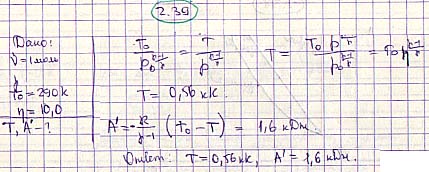 2.39
Дано:
ν = 1 моль
T₀ = 290 К
η = 10,0
T, A' - ?
T₀ / p₀^((γ-1)/γ) = T / p^((γ-1)/γ)
T = T₀ p^((γ-1)/γ) / p₀^((γ-1)/γ) = T₀ η^((γ-1)/γ)
T = 0,56 кК.
A' = - R/(γ-1) (T₀ - T) = 1,6 кДж.
Ответ: T = 0,56 кК, A' = 1,6 кДж.